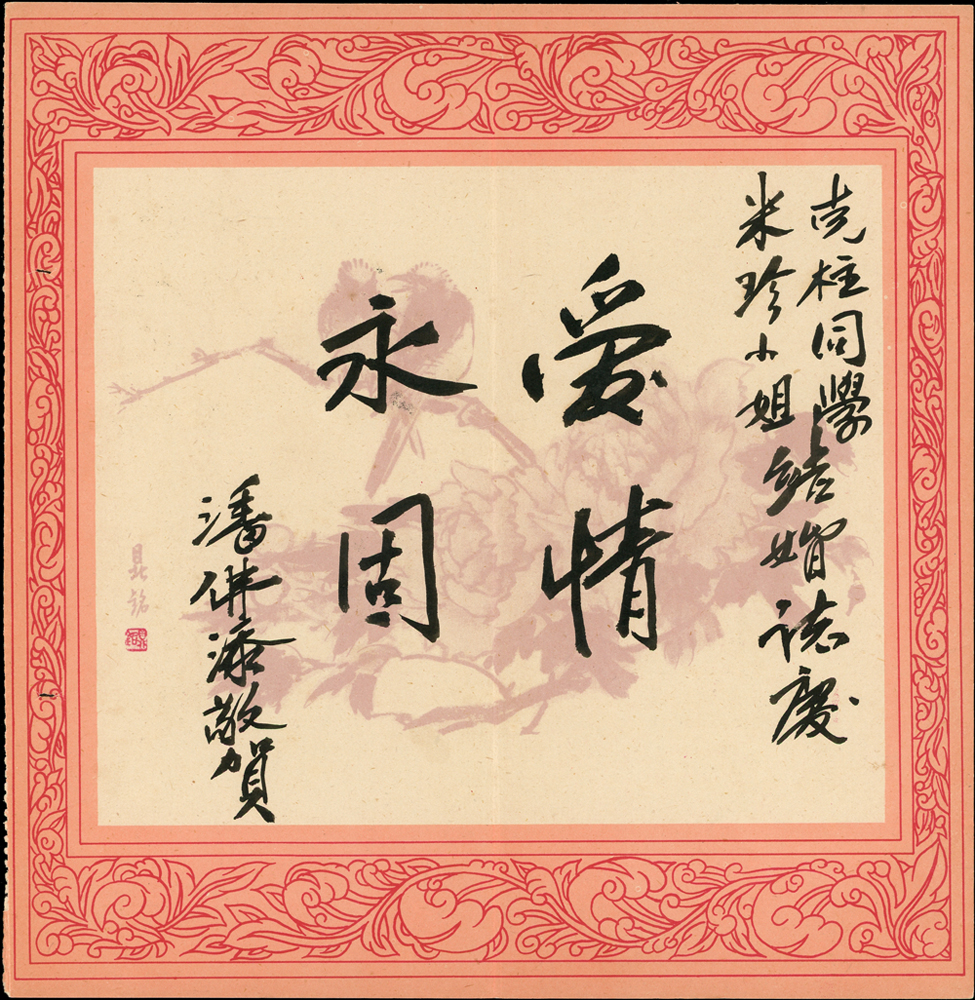 克柱同學
米珍小姐
結婚誌慶
愛情
永固
潘佛添敬賀